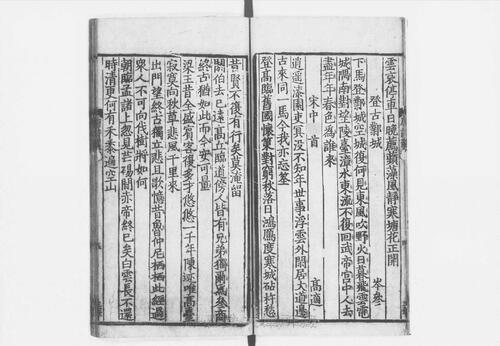 雲哀停車日晚薦蘋藻風靜寒塘花正開
登古鄴城 岑參
下馬登鄴城城空復何見東風吹野火日暮飛雲電
城隅南對望陵臺漳水東流不復回武帝宮中人去
盡年年春色爲誰來
宋中 首 高適
逍遥漆園吏冥没不知年世事浮雲外閑居大道邊
古來同一馬今我亦忘筌
登高臨舊國懷 對窮秋落日鴻鴈度寒城砧杵愁
昔賢不復有行矣莫淹留
閼伯去已遠高丘臨道傍人皆有兄弟獨爾爲參商
終古猶如此而今安可量
梁王昔全盛賓客復多才悠悠一千年陳迹唯高臺
寂寞向秋草悲風千里來
出門望終古獨立悲且歌憶昔魯仲尼栖栖此經過
衆人不可向伐樹將如何
朝臨孟諸上忽見芒碭間赤帝終已矣白雲長不還
時清更何有禾黍遍空山